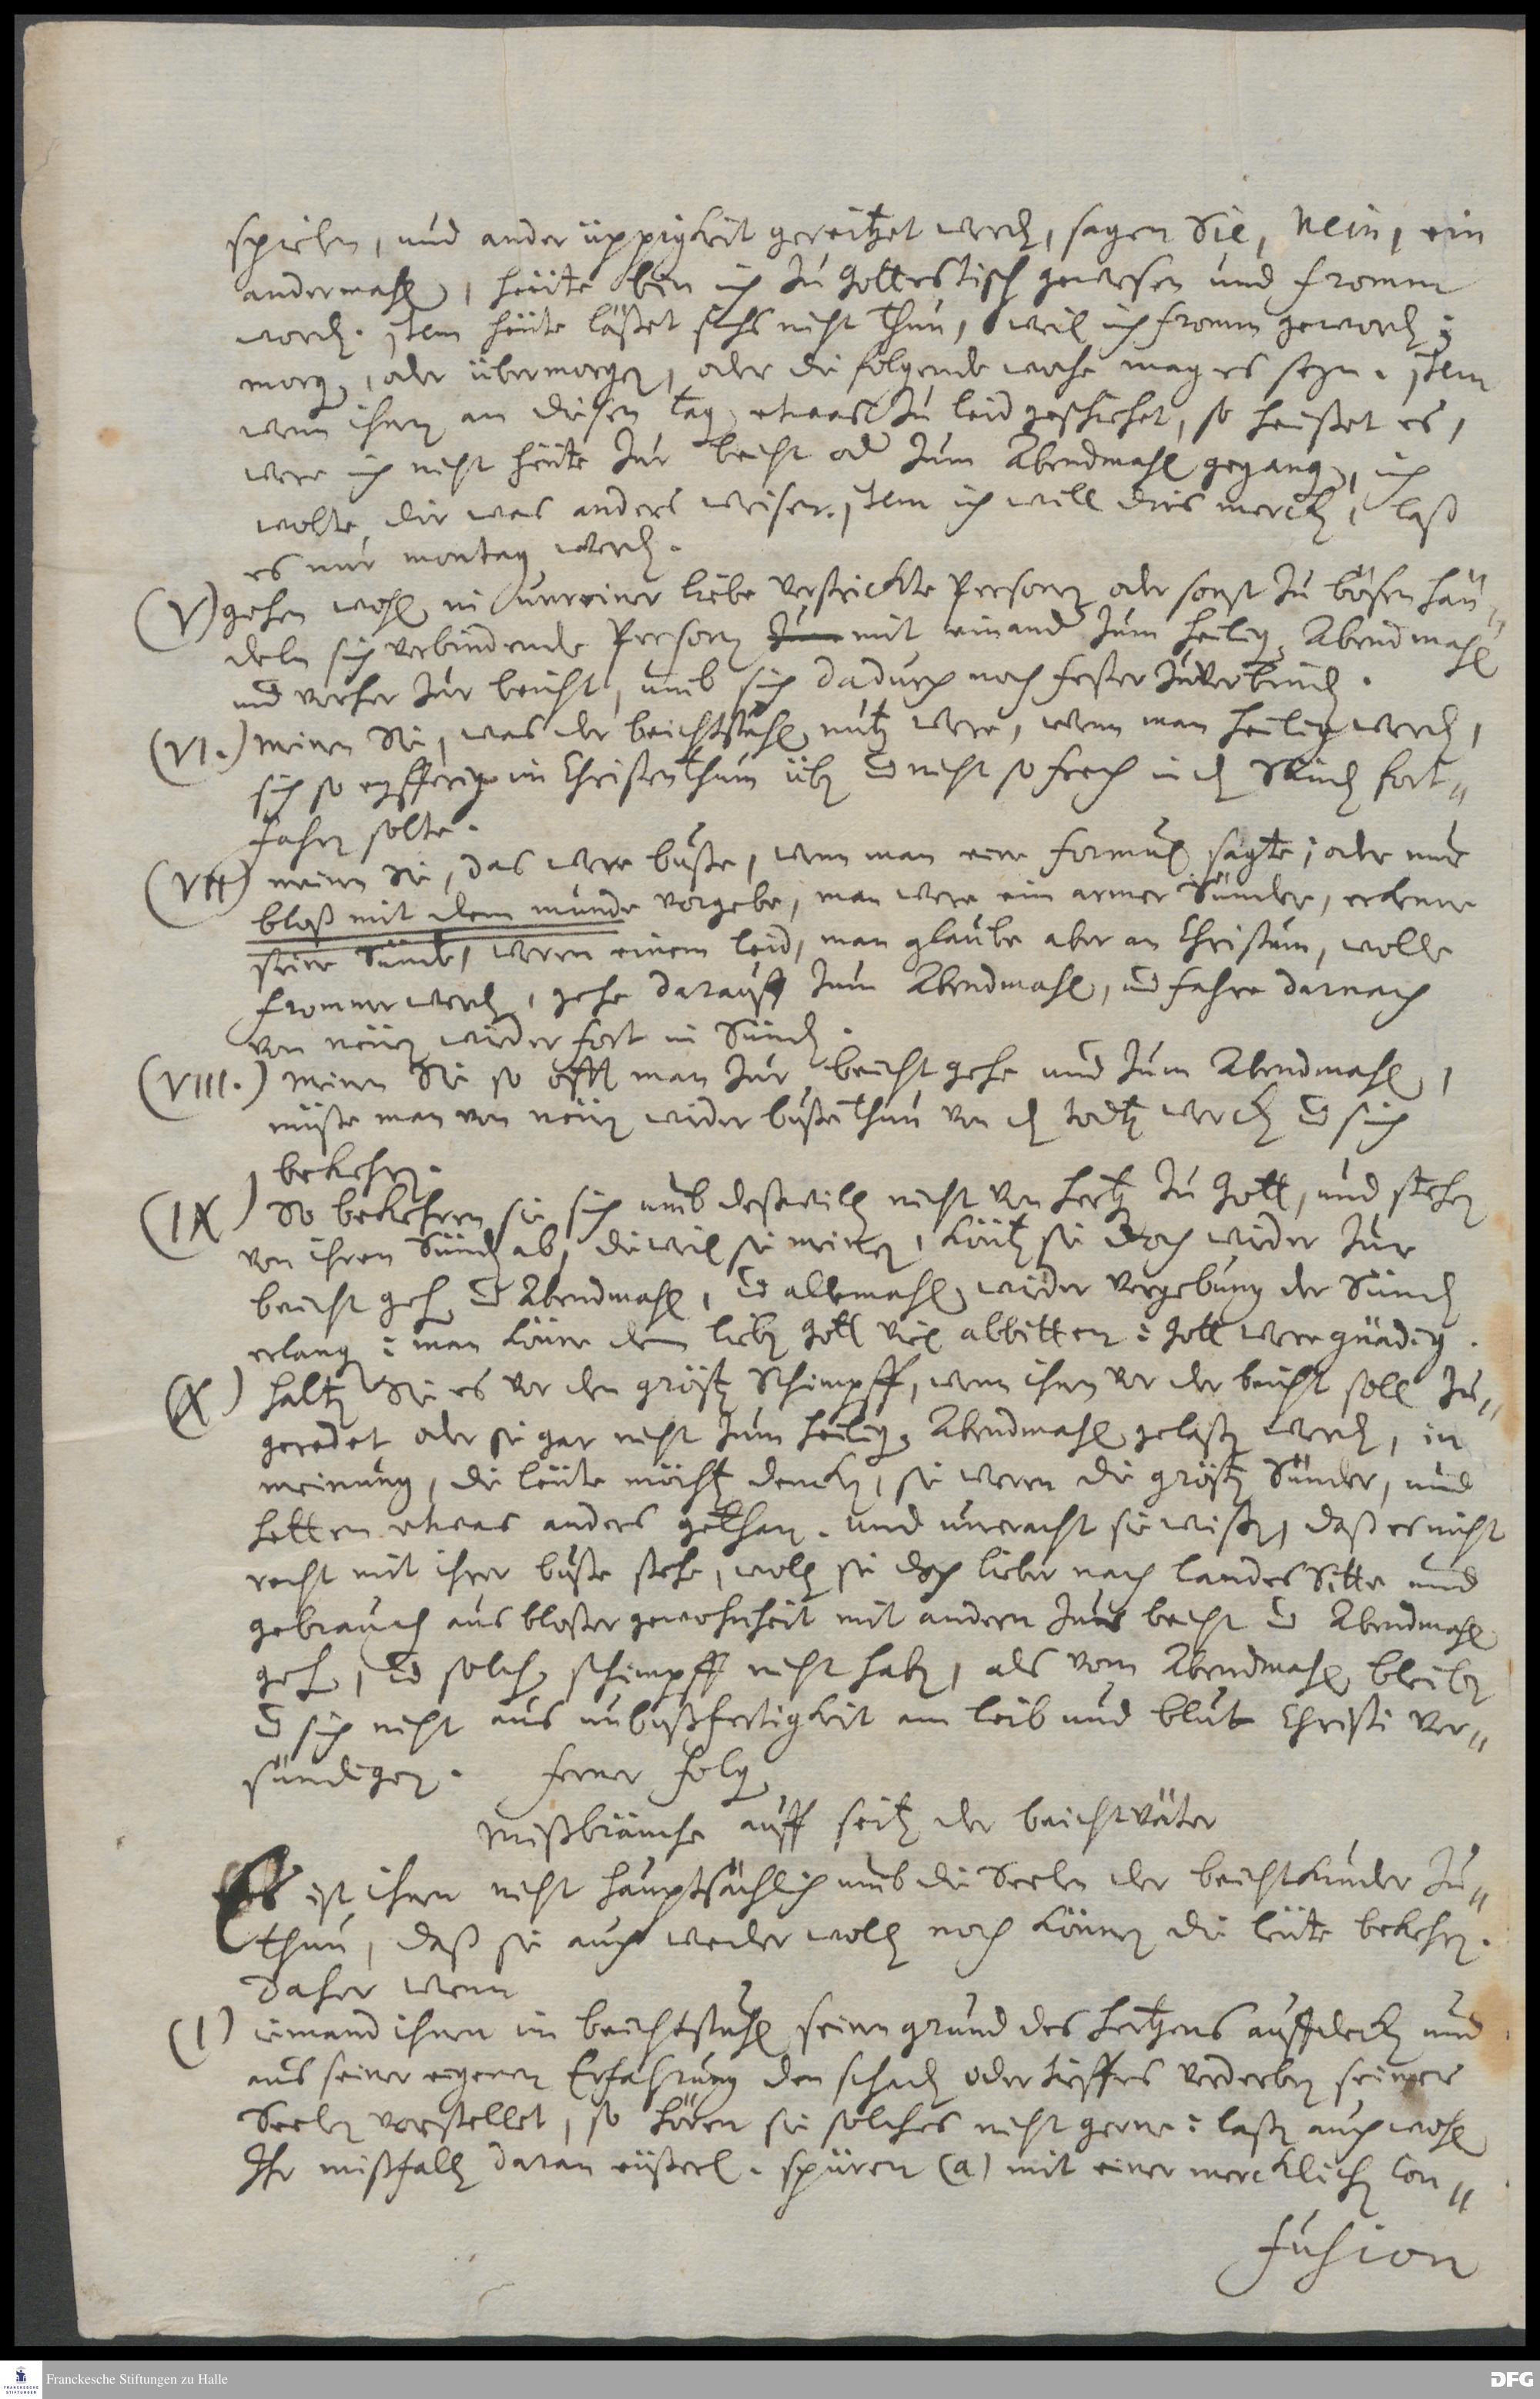 spielen, und ander üppigkeit gereitzet werden, sagen Sie, Nein, ein
andermahl, heüte bin ich zu Gottestisch gewesen und fromm
worden. item heüte läßet sichs nicht thun, weil ich fromm geworden;
morgen, oder übermorgen, oder die folgende woche mag es seyn. item
wenn ihnen an diesen tag etwas zu leid geschiehet, so heißet es,
were ich nicht heüte zur beicht oder zum Abendmahl gegangen, ich
wolte dir was anders weisen. item ich will dirs mercken, laß
es nur montag werden.
(V) gehen wohl in unreiner liebe verstrickte Personen oder sonst zu bösen hän„
deln sich verbindende Personen mit einander zum heiligen Abendmahl
und vorher zur beicht, umb sich dadurch noch fester zuverbinden.
(VI.) meinen Sie, was der beichtstuhl nütz were, wenn man heilig werden,
sich so eyfferig im Christenthum üben und nicht so frech in den Sünden fort„
fahren solte.
(VII) meinen sie, das were buße, wenn man eine formul sagte; oder nur
bloß mit dem munde vorgebe, man were ein armer Sünder, erkenne
seine Sünde, weren einem leid, man glaube aber an Christum, wolle
frommer werden, gehe darauff zum Abendmahl, und fahre darnach
von neüen wieder fort in Sünden.
(VIII.) meinen Sie so offt man zur beicht gehe und zum Abendmahl,
müße man von neüen wieder buße thun von den todten wercken und sich
bekehren.
(IX) So bekehren sie sich umb deßwillen nicht von hertzen zu Gott, und stehen
von ihren Sünden ab, dieweil sie meinen, könten sie doch wieder zur
beicht gehen und Abendmahl, und allemahl wieder vergebung der Sünden
erlangen; man könne dem lieben Gott viel abbitten; Gott were gnädig.
(X) halten Sie es vor den grösten Schimpff, wenn ihnen vor der beicht soll zu„
geredet oder sie gar nicht zum heiligen Abendmahl gelaßen werden, in
meinung, die leüte möchten dencken, sie weren die grösten Sünder, und
hetten etwas anders gethan. und uneracht sie wißen, daß es nicht
recht mit ihrer buße stehe, wollen sie doch lieber nach landes Sitte und
gebrauch aus bloßer gewohnheit mit andern zur beicht und Abendmahl
gehen, und solchen schimpff nicht haben, als vom Abendmahl bleiben
und sich nicht aus unbußfertigkeit am leib und blut Christi ver„
sündigen. ferner folgen
Mißbräuche auff seiten der beichtväter
Es ist ihnen nicht hauptsächlich umb die Seelen der beichtkinder zu„
thun, daß sie auch weder wollen noch können die leüte bekehren.
Daher wenn
(I) iemand ihnen im beichtstuhl seinen grund des hertzens auffdecken und
aus seiner eigenen Erfahrung den schaden oder tieffes verderben seiner
Seelen vorstellet, so hören sie solches nicht gerne; laßen auch wohl
Ihr mißfallen daran eüßerl. spüren (a) mit einer mercklichen Con„
fusion
Franckesche Stiftungen zu Halle
DFG